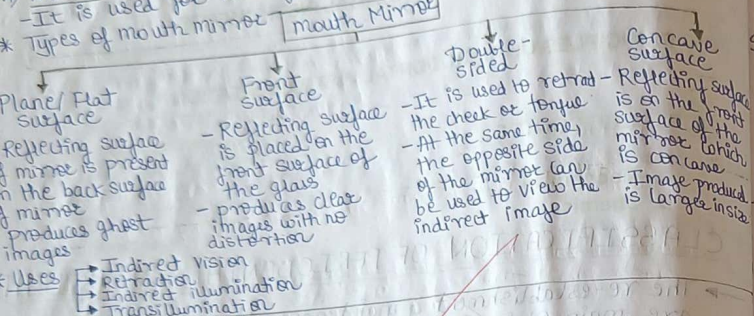 -It is used for
* Types of mouth mirror
mouth Mirror
Plane/Flat
surface
Reflecting surface
mirror is present
n the back surface
mirror
Produces ghost
images
Front
surface
- Reflecting surface
is placed on the
front surface of
the glass
- produces clear
images with no
distortion
Double-
sided
- It is used to retract
the cheek or tongue
- At the same time,
the opposite side
of the mirror can
be used to view the
indirect image
Concave
surface
- Reflecting surface
is on the front
surface of the
mirror which
is concave
- Image produced
is larger in size
* Uses
Indirect vision
Retraction
Indirect illumination
Transillumination